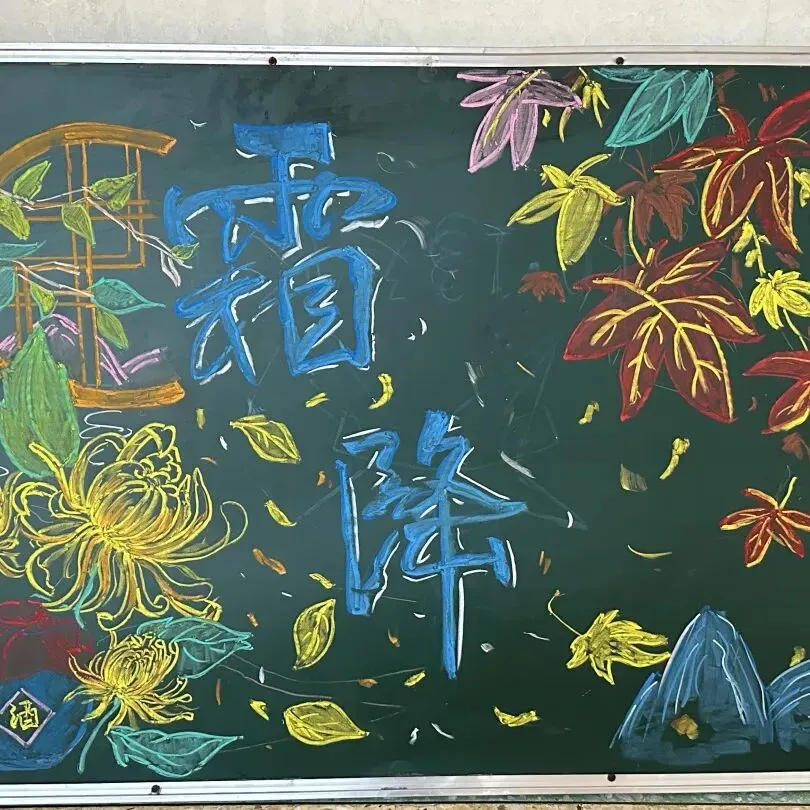 霜
降
酒